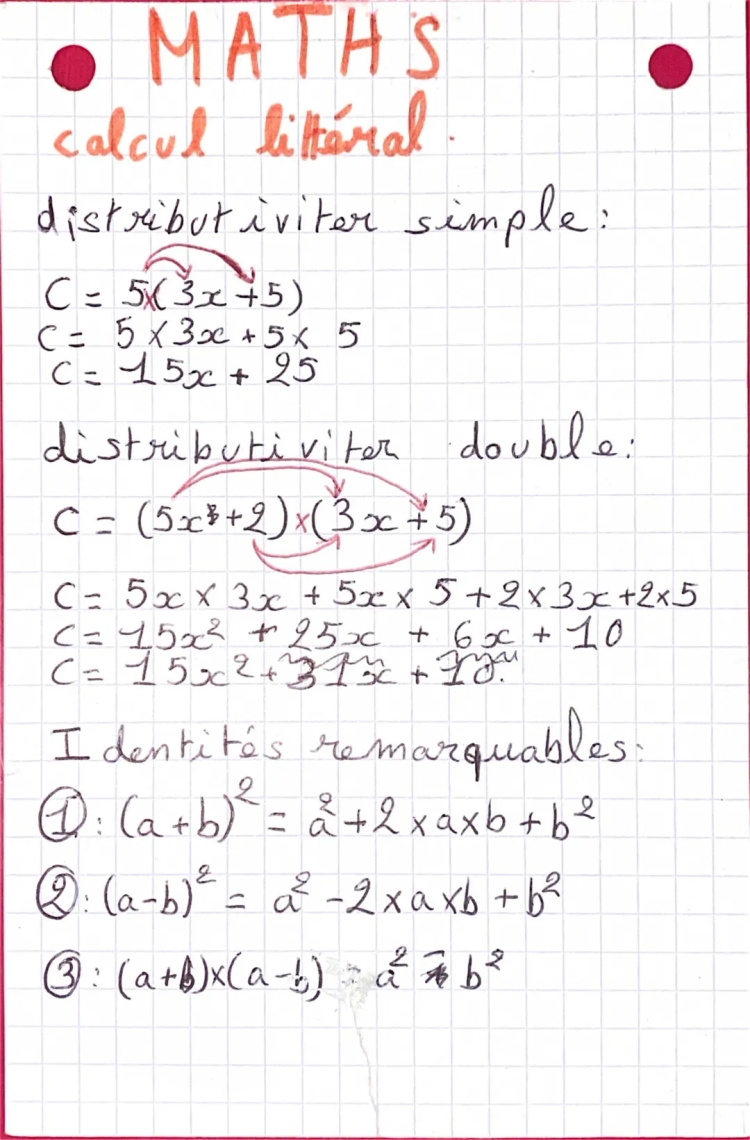 MATHS
calcul littéral.
distributiviter simple:
C = 5x(3x+5)
C = 5 x 3x + 5 x 5
C = 15x + 25
distributiviter double:
C = (5x+2)x(3x+5)
C = 5x x 3x + 5x x 5 + 2 x 3x + 2 x 5
C = 15x² + 25x + 6x + 10
C = 15x² + 31x + 10
Identités remarquables:
①: (a+b)² = a² + 2 x a x b + b²
②: (a-b)² = a² - 2 x a x b + b²
③: (a+b)x(a-b) = a² - b²